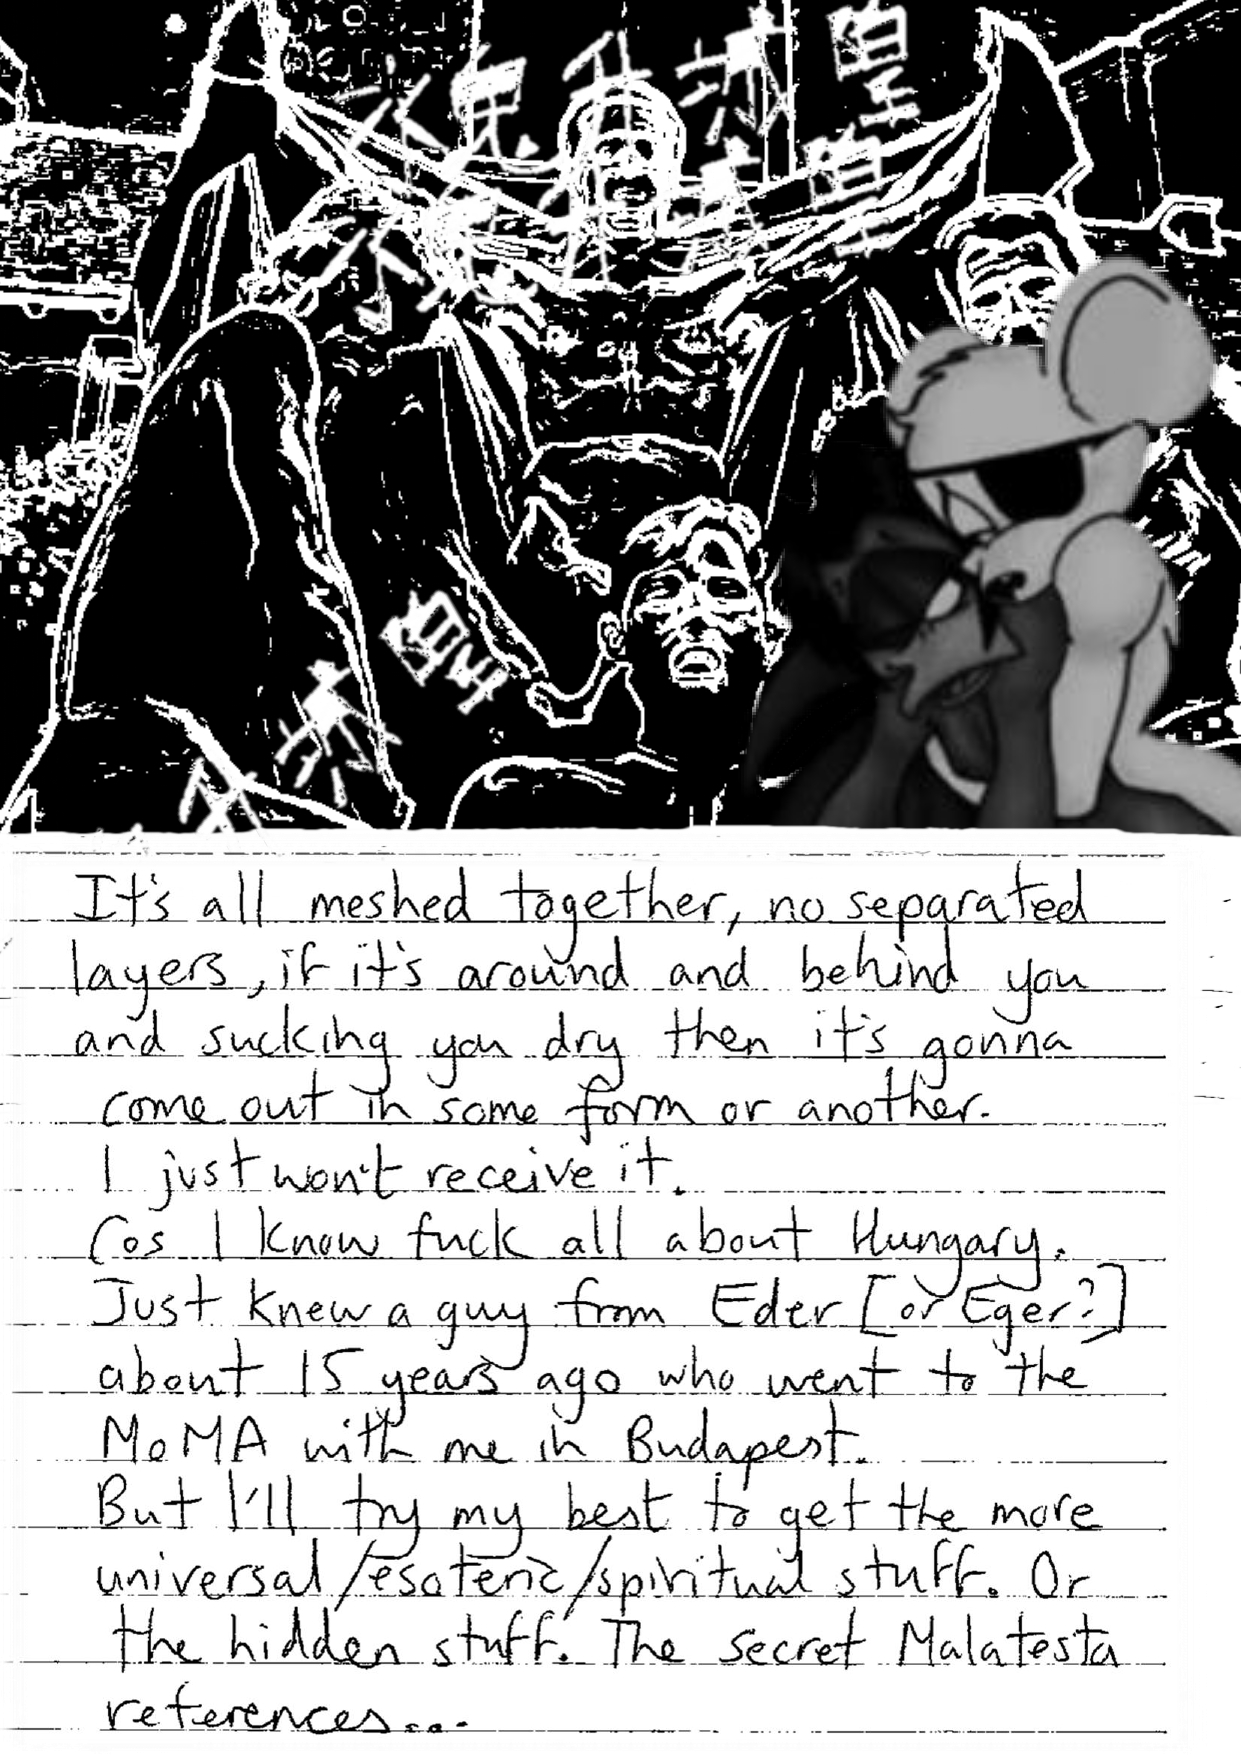 不見有城皇
不見有城皇
It's all meshed together, no separated
layers, if it's around and behind you
and sucking you dry then it's gonna
come out in some form or another.
I just won't receive it.
Cos I know fuck all about Hungary.
Just knew a guy from Eder [or Eger?]
about 15 years ago who went to the
MoMA with me in Budapest.
But I'll try my best to get the more
universal/esoteric/spiritual stuff. Or
the hidden stuff. The secret Malatesta
references...